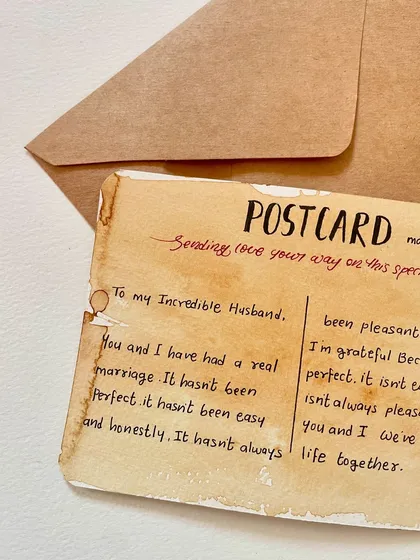 POSTCARD
Sending love your way on this
To my Incredible Husband,
You and I have had a real
marriage. It hasn't been
Perfect. it hasn't been easy
and honestly, It hasn't always
been pleasant
I'm grateful
perfect. it isn't
isn't always
you and I we've
life together.